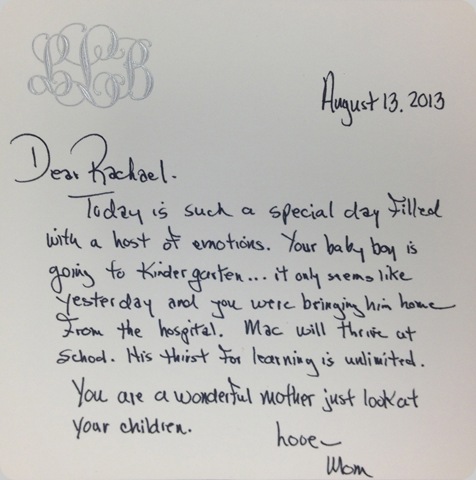 August 13. 2013
Dear Rachael.
Today is such a special day filled
with a host of emotions. Your baby boy is
going to Kindergarten... it only seems like
yesterday and you were bringing him home
from the hospital. Mac will thrive at
School. His thirst for learning is unlimited.
You are a wonderful mother just look at
your children.
Love~
Mom